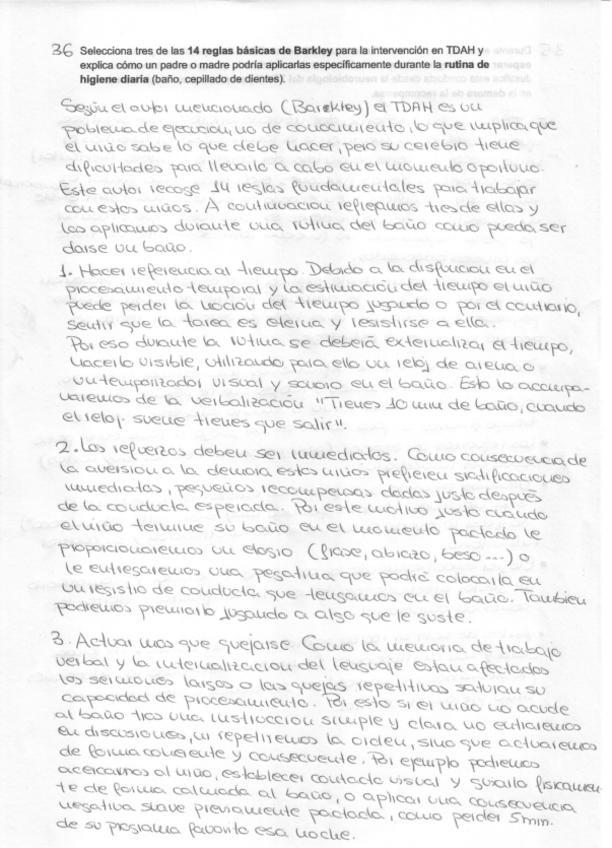 36 Selecciona tres de las 14 reglas básicas de Barkley para la intervención en TDAH y
explica cómo un padre o madre podría aplicarlas específicamente durante la rutina de
higiene diaria (baño, cepillado de dientes).
Según el autor mencionado (Barkley) el TDAH es un
problema de ejecución, no de conocimiento, lo que implica que
el niño sabe lo que debe hacer, pero su cerebro tiene
dificultades para llevarlo a cabo en el momento oportuno.
Este autor recoge 14 reglas fundamentales para trabajar
con estos niños. A continuación reflejamos tres de ellas y
las aplicamos durante una rutina del baño como pueda ser
darse un baño.
1. Hacer referencia al tiempo. Debido a la disfunción en el
procesamiento temporal y la estimación del tiempo el niño
puede perder la noción del tiempo jugando o por el contrario,
sentir que la tarea es eterna y resistirse a ella.
Por eso durante la rutina se deberá externalizar el tiempo,
hacerlo visible, utilizando para ello un reloj de arena o
un temporizador visual y sonoro en el baño. Esto lo acompa-
ñaremos de la verbalización "Tienes 10 min de baño, cuando
el reloj suene tienes que salir".
2. Los refuerzos deben ser inmediatos. Como consecuencia de
la aversión a la demora estos niños prefieren gratificaciones
inmediatas, pequeñas recompensas dadas justo después
de la conducta esperada. Por este motivo justo cuando
el niño termine su baño en el momento pactado le
proporcionaremos un elogio (frase, abrazo, beso ...) o
le entregaremos una pegatina que podrá colocarla en
un registro de conducta que tengamos en el baño. También
podremos premiarlo jugando a algo que le guste.
3. Actuar mas que quejarse Como la memoria de trabajo
verbal y la internalización del lenguaje estan afectados
los sermones largos o las quejas repetitivas saturan su
capacidad de procesamiento. Por esto si el niño no acude
al baño tras una instrucción simple y clara no entraremos
en discusiones, ni repetiremos la orden, sino que actuaremos
de forma coherente y consecuente. Por ejemplo podremos
acercarnos al niño, establecer contacto visual y guiarlo físicamen-
te de forma calmada al baño, o aplicar una consecuencia
negativa suave previamente pactada, como perder 5 min.
de su programa favorito esa noche.